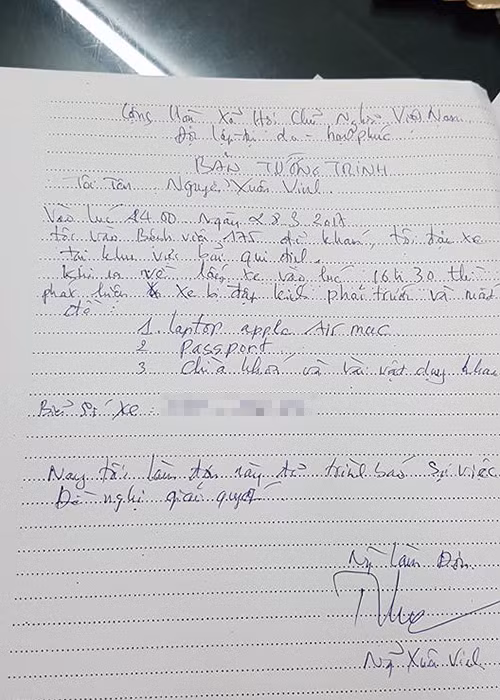 Cộng Hòa Xã Hội Chủ Nghĩa Việt Nam
Độ lập - tự do - hạnh phúc
BẢN TƯỜNG TRÌNH
Tôi Tên Nguyễn Xuân Vinh
Vào lúc 14.00 ngày 28.3.2017
tôi vào Bệnh viện 175 để khám, tôi đậu xe
tại khu vực bãi qui định.
khi ra về lấy xe vào lúc 16h30 thì
phát hiện xe bị đập kính phải trước và mất
đồ
1. laptop apple Air mac
2 Passport
3 chìa khoá và vài vật dụng khác
Biển số xe :
Nay tôi làm đơn này để trình báo sự việc
Đề nghị giải quyết
Ng làm Đơn
Ng Xuân Vinh